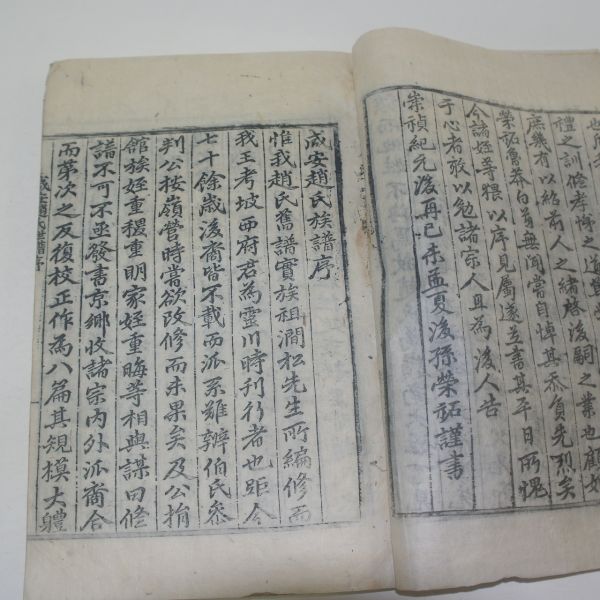 禮之訓惟孝悌之道
庶幾有以紹前人之緒啓後嗣之業也顧如
榮祏魯莽白首無聞嘗自悼其忝負先烈矣
今諸姪等猥以序見屬遂並書其平日所愧
于心者敢以勉諸宗人且為後人告
崇禎紀元後再己未孟夏後孫榮祏謹書
咸安趙氏族譜序
惟我趙氏舊譜實族祖澗松先生所編修而
我王考坡西府君為靈川時刊行者也距今
七十餘歲後裔皆不載西派系難辨伯氏參
判公按嶺營時嘗欲改修而未果矣及公捐
館族姪重稷重明家姪重晦等相與謀曰修
譜不可不亟發書京鄉收諸宗內外派裔合
而第次之反復校正作為八篇其規模大體
咸安趙氏譜序